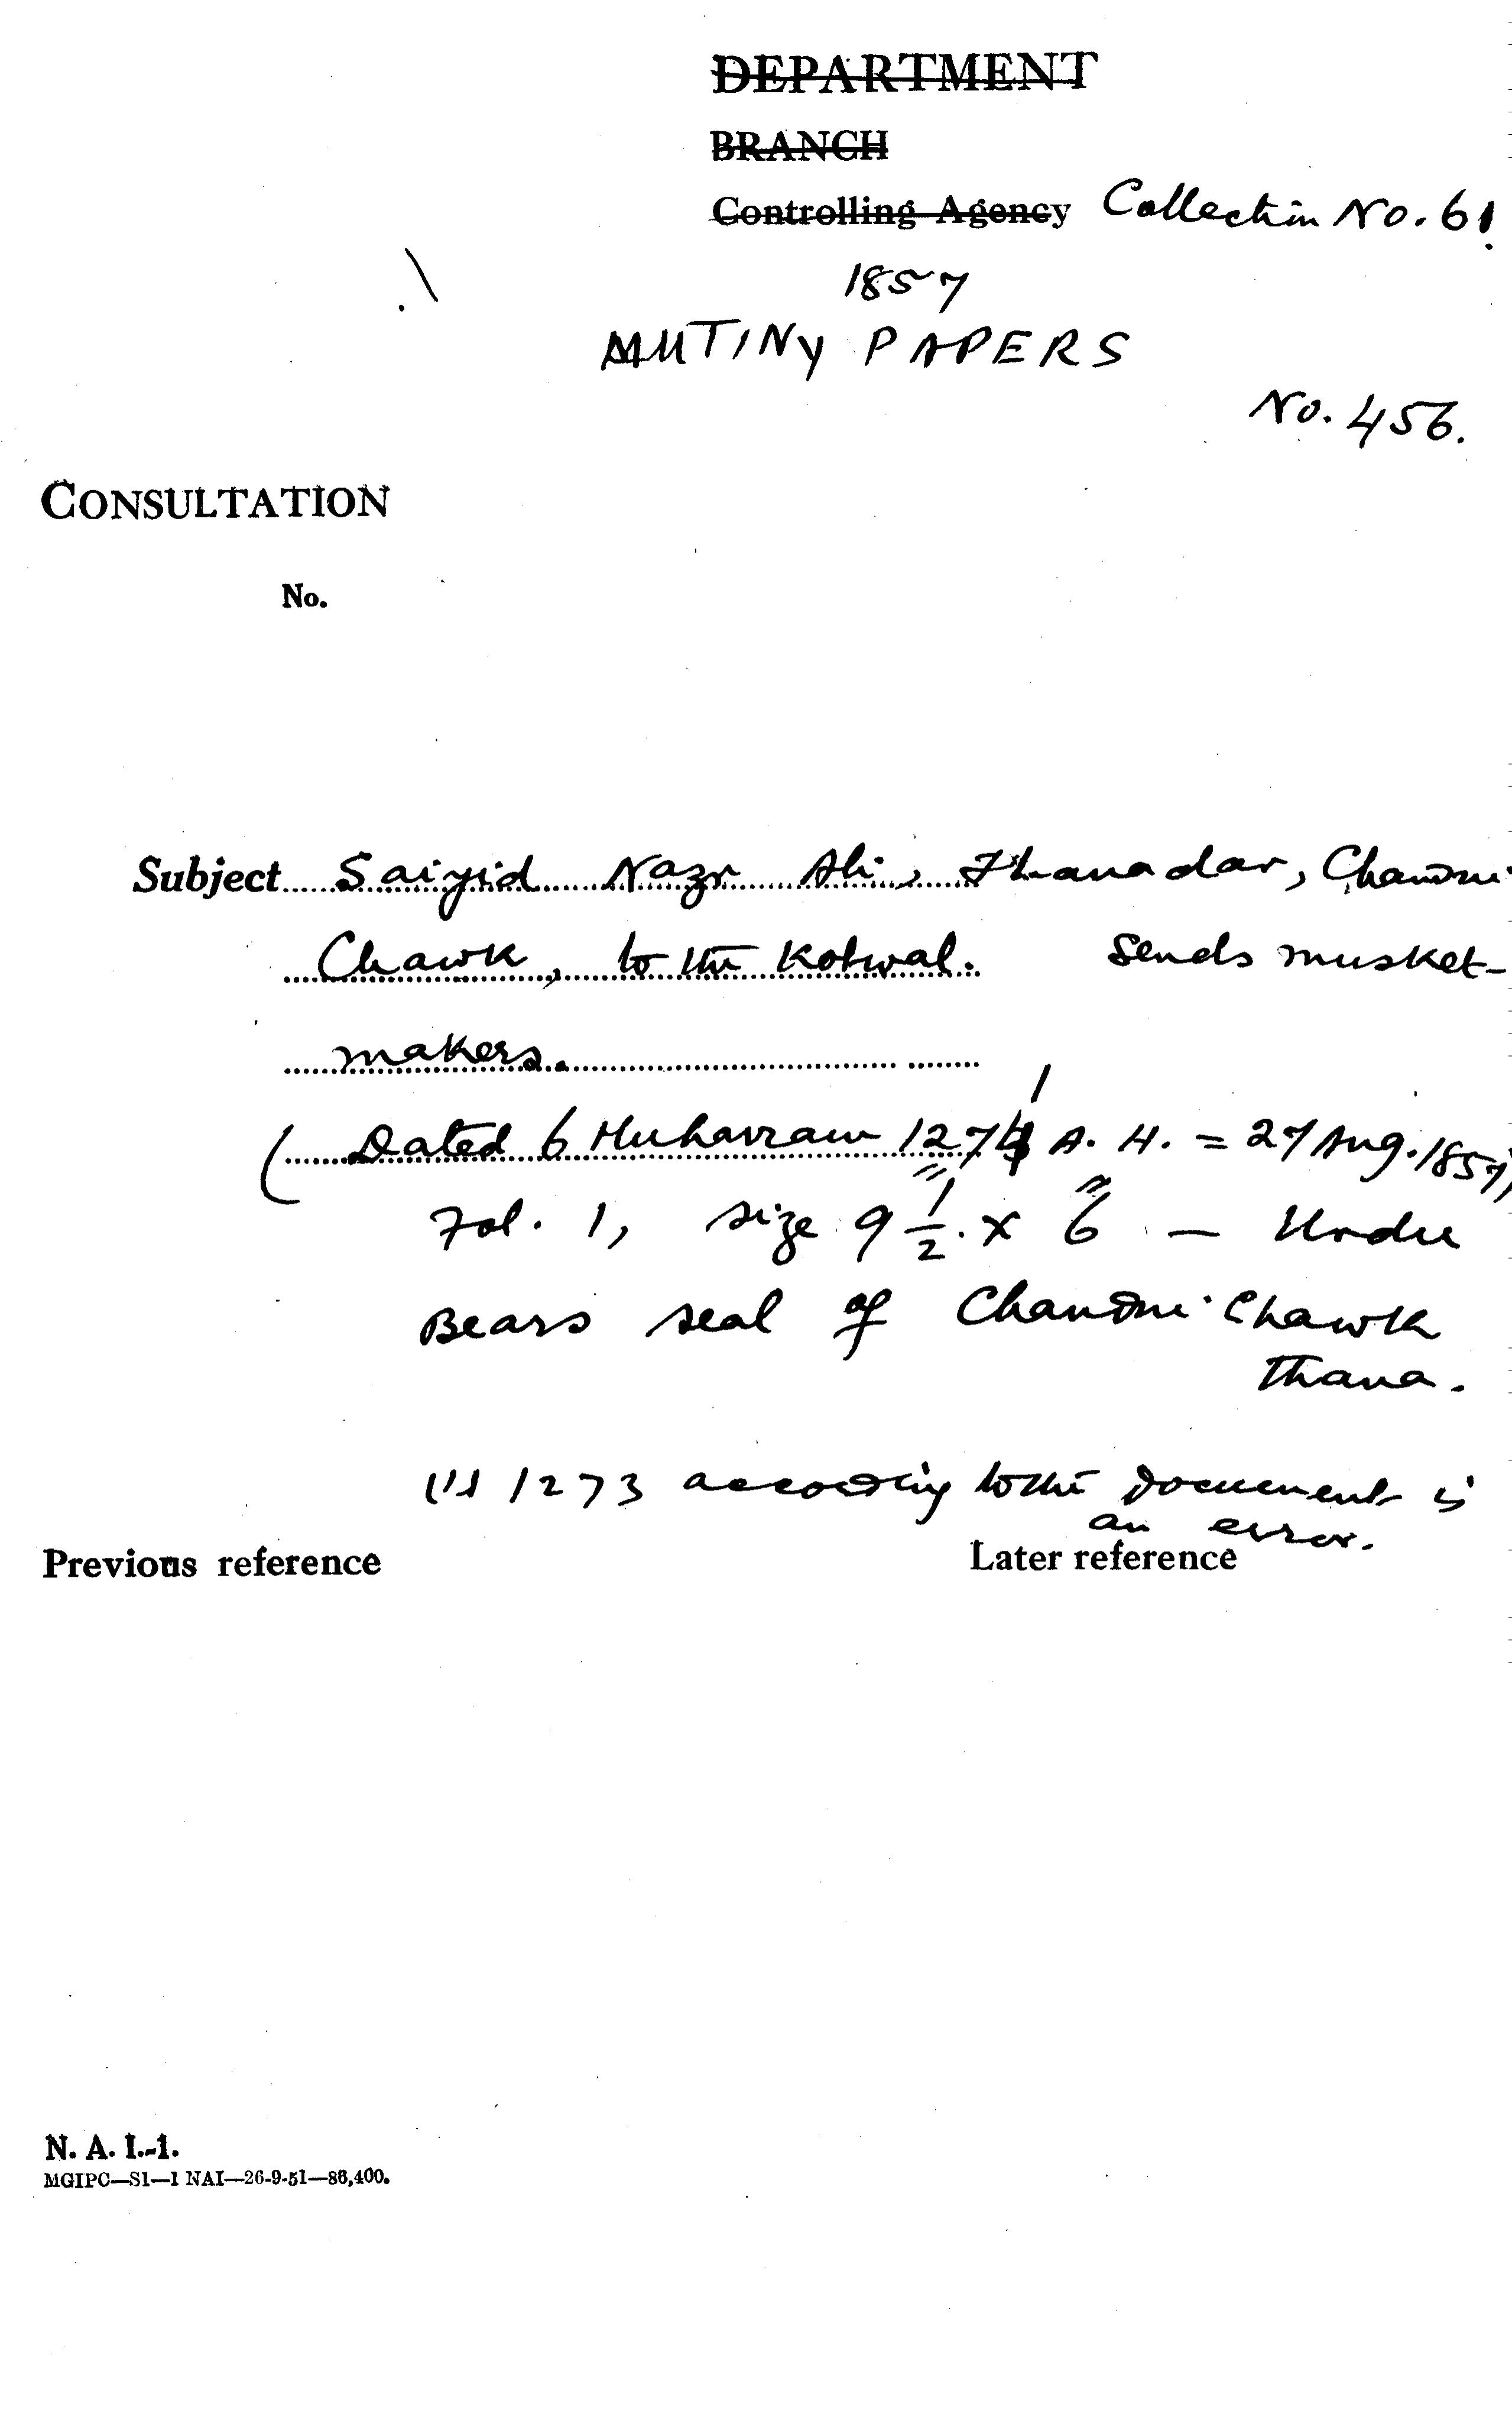 DEPARTMENT
BRANCH
Controlling Agency Collection No. 61.
1857
MUTINY PAPERS
No. 456.
CONSULTATION
No.
Subject Saiyid Nazr Ali, Thanadar, Chandni
Chawk, to the Kotwal. Sends musket-
makers.
(Dated 6 Muharram 1274 1 A. H. = 27 Aug. 1857)
Fol. 1, size 9 1/2" x 6" — Urdu
Bears seal of Chandni Chawk
Thana.
(1) 1273 according to the document is
an error.
Previous reference
Later reference
N. A. I.-1.
MGIPC—S1—1 NAI—26-9-51—86,400.